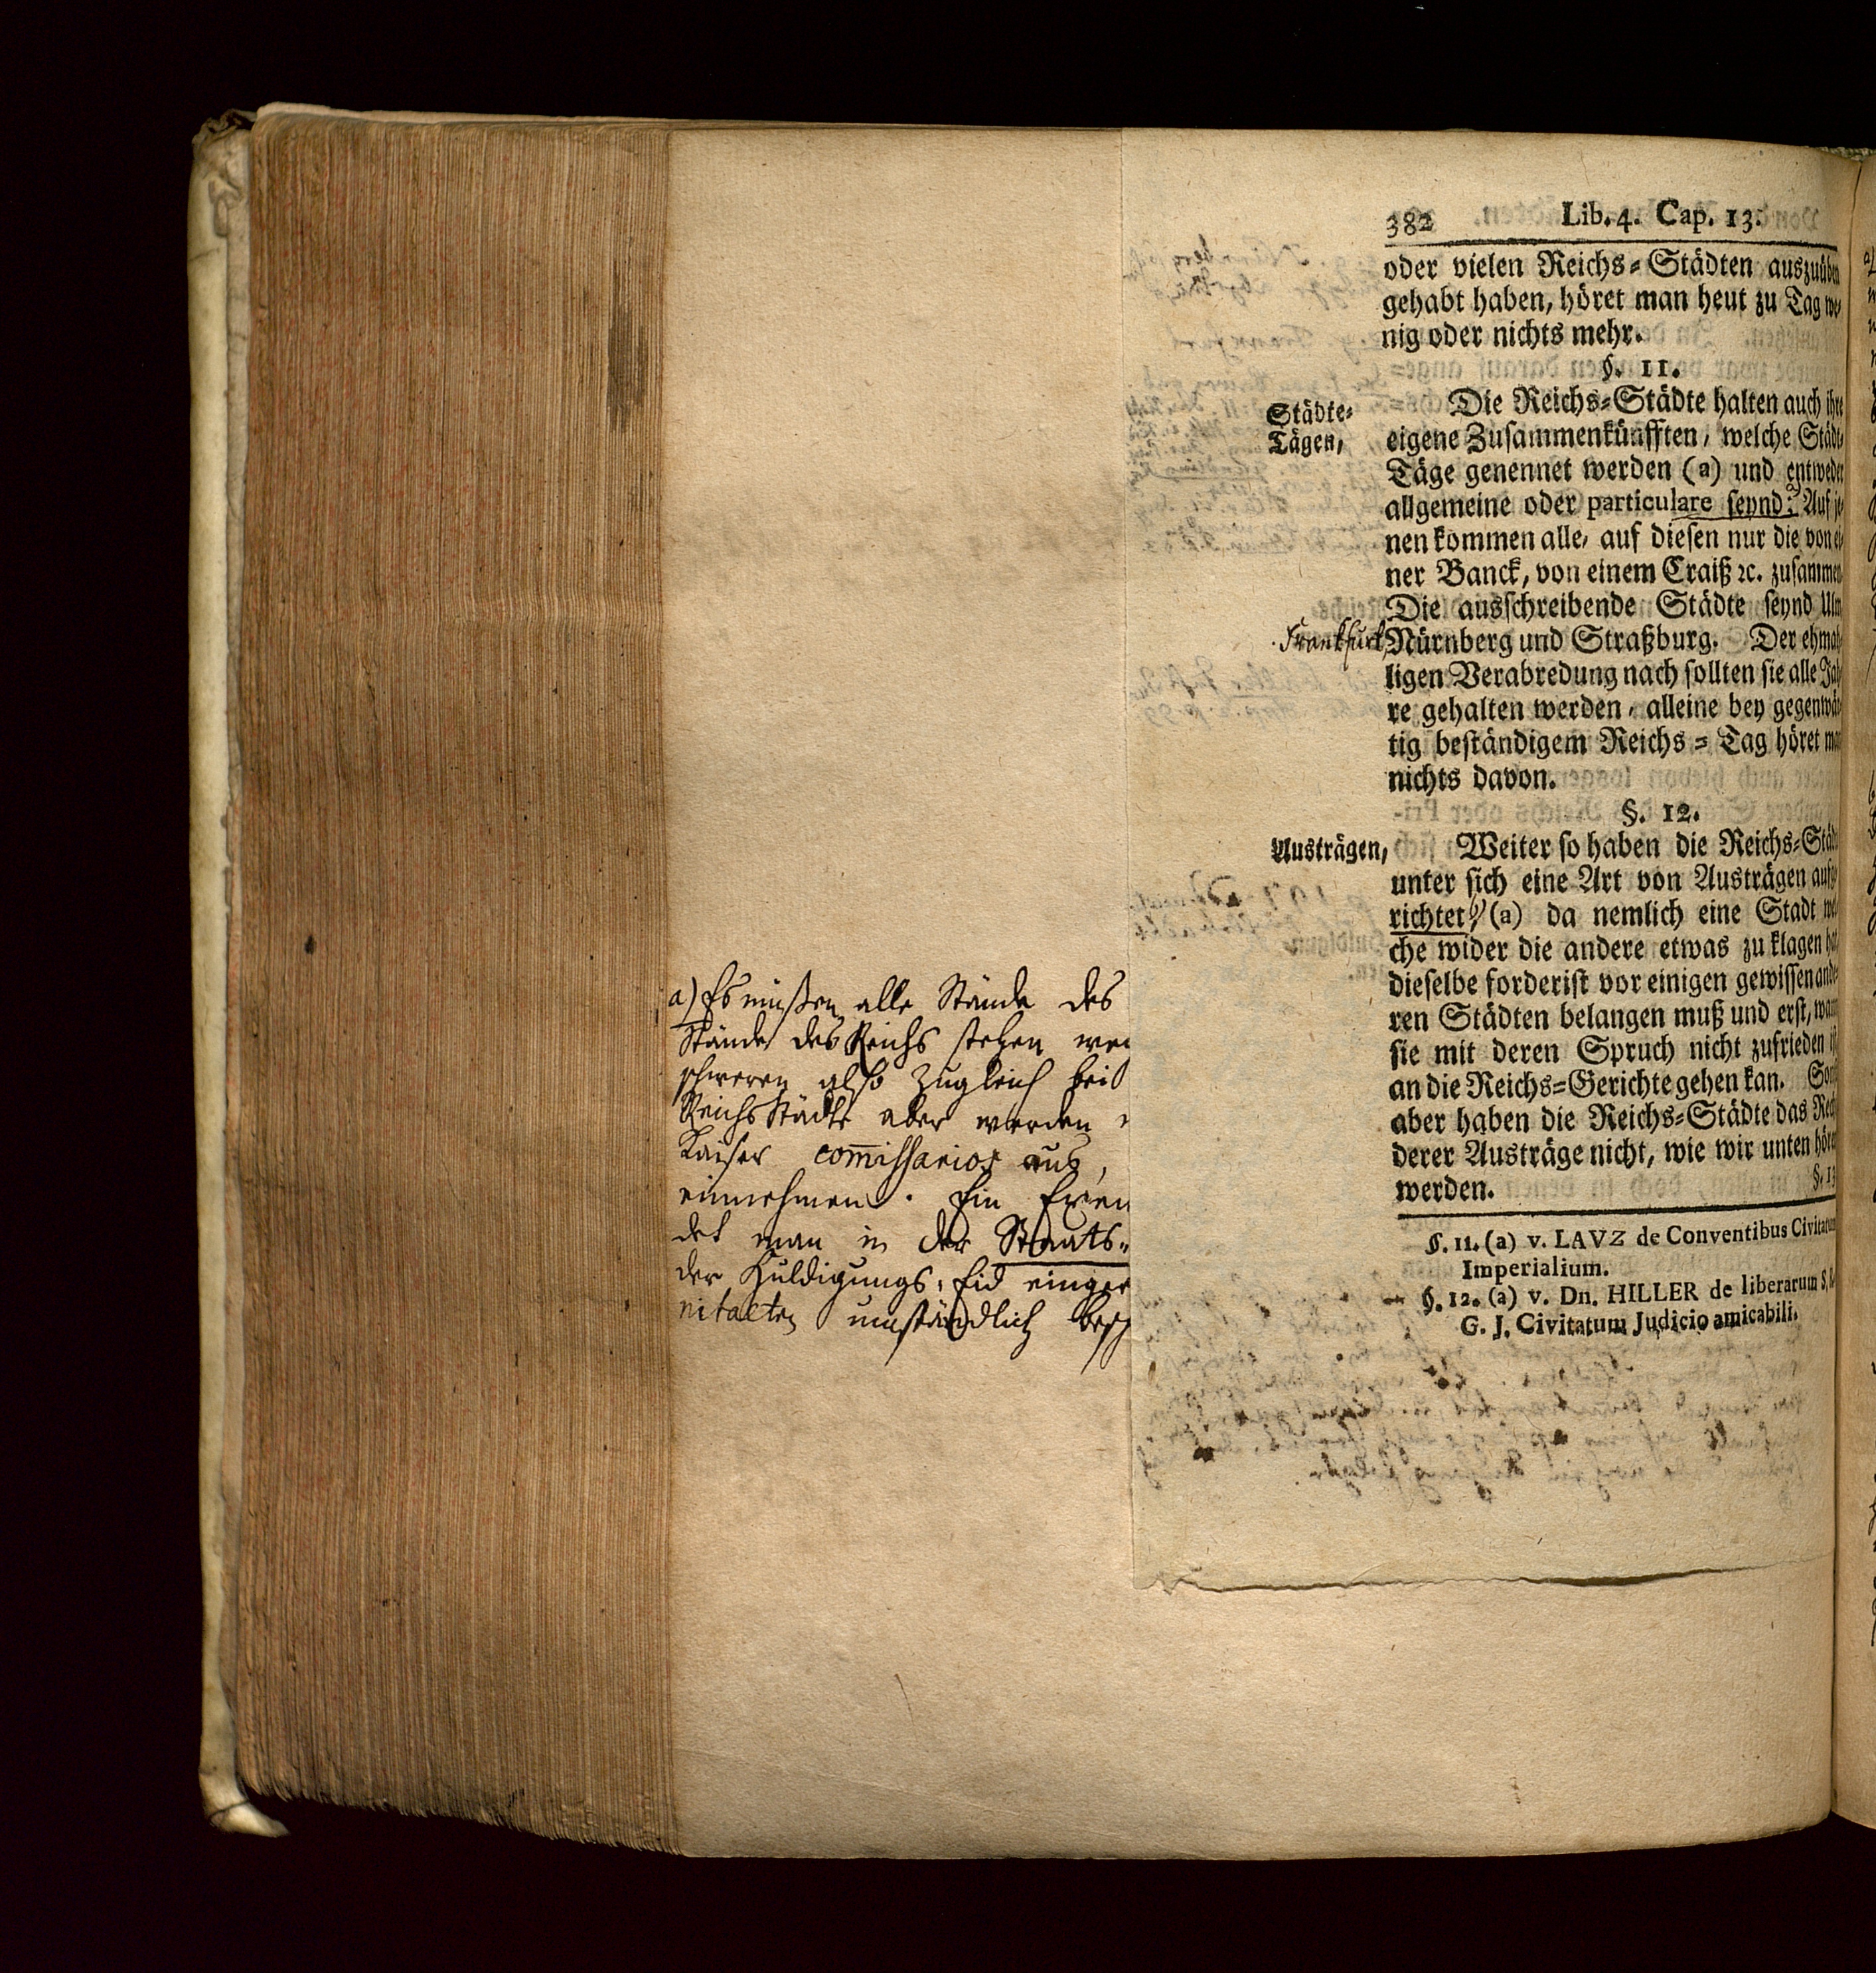 382 Lib. 4. Cap. 13.
oder vielen Reichs=Städten auszuüben
gehabt haben, höret man heut zu Tag we=
nig oder nichts mehr.
§. 11.
Städte=
Tägen,
Die Reichs=Städte halten auch ihre
eigene Zusammenkünfften, welche Städt=
Täge genennet werden (a) und entweder
allgemeine oder particulare seynd: Auf je=
nen kommen alle, auf diesen nur die von ei=
ner Banck, von einem Craiß ꝛc. zusammen
Die ausschreibende Städte seynd Ulm
Frankfurt, Nürnberg und Straßburg. Der ehma=
ligen Verabredung nach sollten sie alle Jah=
re gehalten werden, alleine bey gegenwär=
tig beständigem Reichs=Tag höret man
nichts davon.
§. 12.
Austrägen,
Weiter so haben die Reichs=Städ
unter sich eine Art von Austrägen aufge
richtet, (a) da nemlich eine Stadt wel
che wider die andere etwas zu klagen hat
dieselbe forderist vor einigen gewissen ande
ren Städten belangen muß und erst, wann
sie mit deren Spruch nicht zufrieden ist
an die Reichs=Gerichte gehen kan. Sonst
aber haben die Reichs=Städte das Rech
derer Austräge nicht, wie wir unten hören
werden.
§. 13
§. 11. (a) v. LAVZ de Conventibus Civitatum
Imperialium.
§. 12. (a) v. Dn. HILLER de liberarum S.
G. J. Civitatum Judicio amicabili.
a) Es müßen alle Stände des
Stände des Reichs stehen
schweren also zugleich
ReichsStädte aber werden
Kaiser commissarios aus,
einnehmen. Ein
det man in der Staats=
der Huldigungs=Eid
nitaeten umständlich